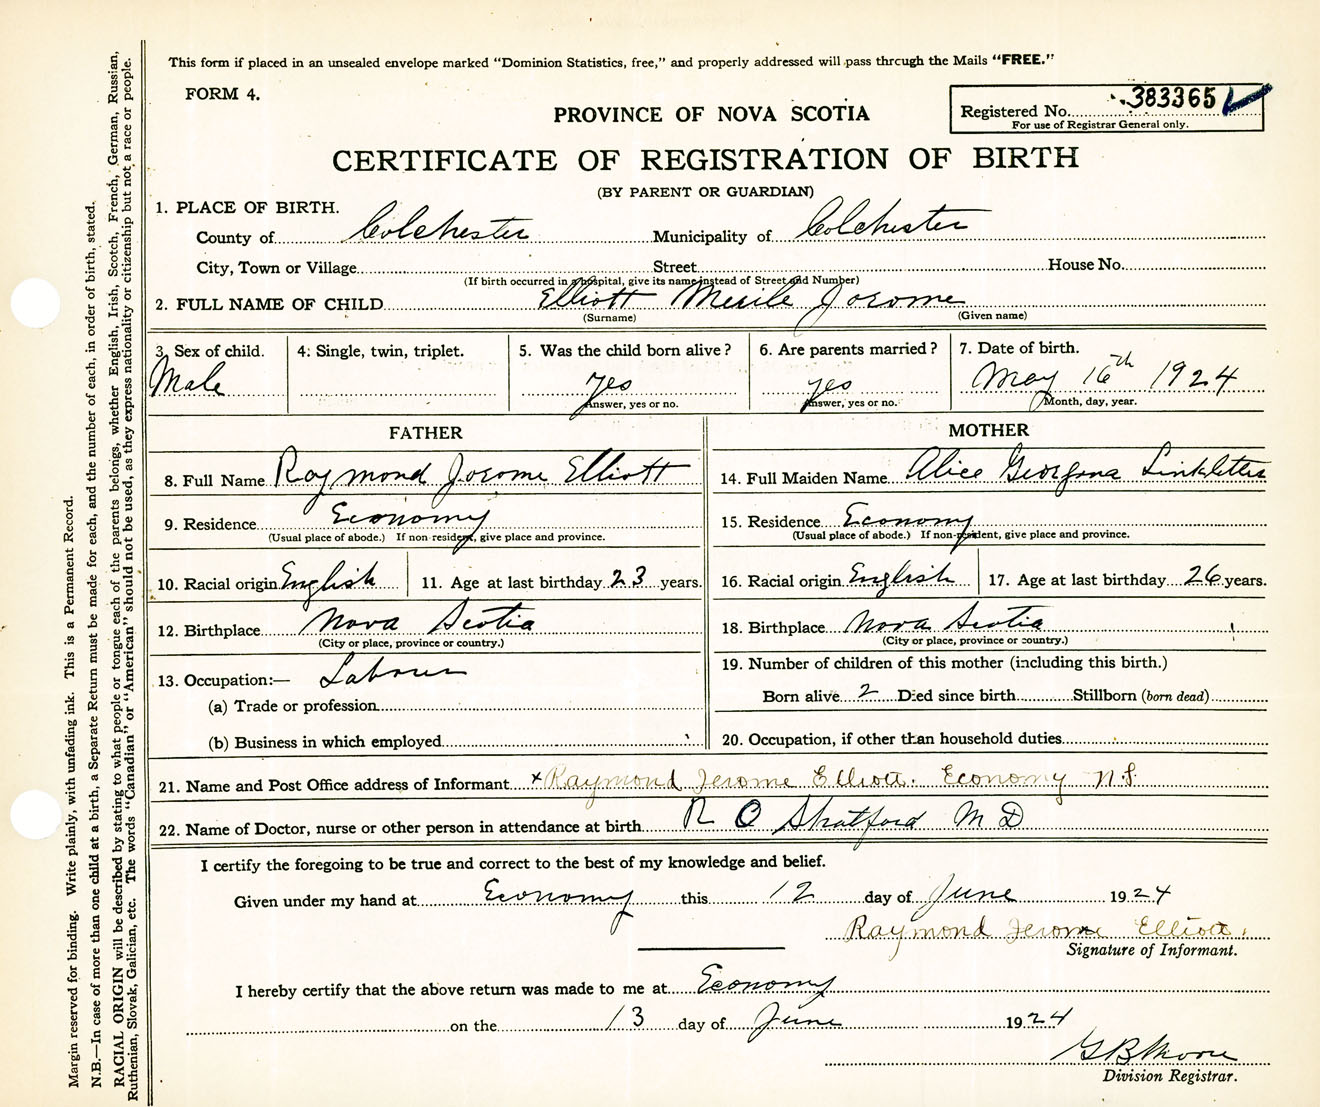 This form if placed in an unsealed envelope marked "Dominion Statistics, free," and properly addressed will pass through the Mails "FREE."
FORM 4.
PROVINCE OF NOVA SCOTIA
Registered No. 383365
For use of Registrar General only.
CERTIFICATE OF REGISTRATION OF BIRTH
(BY PARENT OR GUARDIAN)
1. PLACE OF BIRTH.
County of Colchester Municipality of Colchester
City, Town or Village Street House No.
(If birth occurred in a hospital, give its name instead of Street and Number)
2. FULL NAME OF CHILD Elliott Merile Jorome
(Surname) (Given name)
3. Sex of child. 4. Single, twin, triplet. 5. Was the child born alive? 6. Are parents married? 7. Date of birth.
Male yes yes May 16th 1924
Answer, yes or no. Answer, yes or no. Month, day, year.
FATHER MOTHER
8. Full Name Raymond Jorome Elliott 14. Full Maiden Name Alice Georgona Linkletter
9. Residence Economy 15. Residence Economy
(Usual place of abode.) If non-resident, give place and province. (Usual place of abode.) If non-resident, give place and province.
10. Racial origin English 11. Age at last birthday 23 years. 16. Racial origin English 17. Age at last birthday 26 years.
12. Birthplace Nova Scotia 18. Birthplace Nova Scotia
(City or place, province or country.) (City or place, province or country.)
13. Occupation:— Labourer 19. Number of children of this mother (including this birth.)
(a) Trade or profession Born alive 2 Died since birth Stillborn (born dead)
(b) Business in which employed 20. Occupation, if other than household duties
21. Name and Post Office address of Informant x Raymond Jerome Elliott. Economy N.S.
22. Name of Doctor, nurse or other person in attendance at birth R O Shatford M D
I certify the foregoing to be true and correct to the best of my knowledge and belief.
Given under my hand at Economy this 12 day of June 1924
Raymond Jerome Elliott.
Signature of Informant.
I hereby certify that the above return was made to me at Economy
on the 13 day of June 1924
G B Moore
Division Registrar.
Margin reserved for binding. Write plainly, with unfading ink. This is a Permanent Record.
N.B.—In case of more than one child at a birth, a Separate Return must be made for each, and the number of each, in order of birth, stated.
RACIAL ORIGIN will be described by stating to what people or tongue each of the parents belongs, whether English, Irish, Scotch, French, German, Russian,
Ruthenian, Slovak, Galician, etc. The words "Canadian" or "American" should not be used, as they express nationality or citizenship but not a race or people.